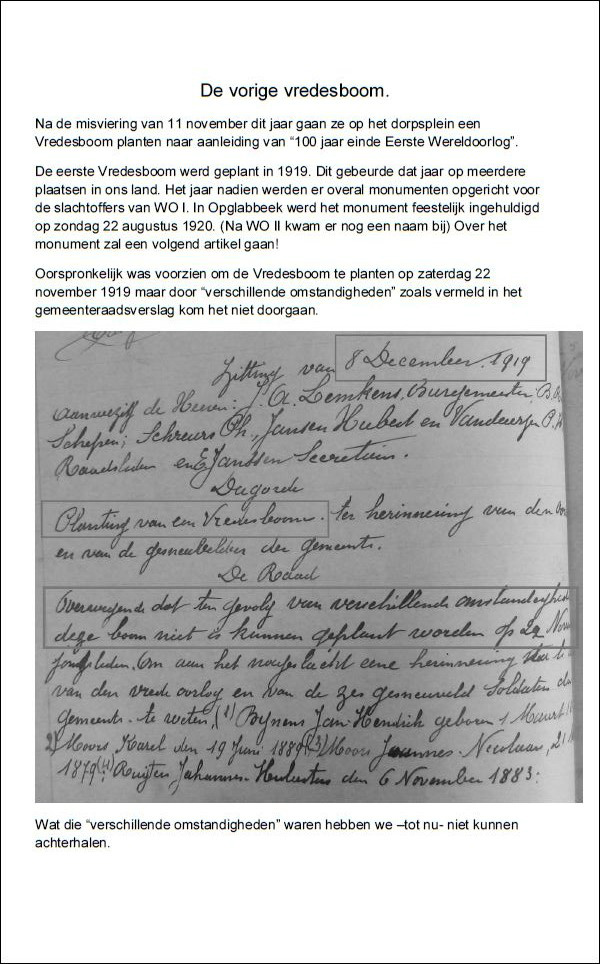 De vorige vredesboom.
Na de misviering van 11 november dit jaar gaan ze op het dorpsplein een
Vredesboom planten naar aanleiding van “100 jaar einde Eerste Wereldoorlog”.
De eerste Vredesboom werd geplant in 1919. Dit gebeurde dat jaar op meerdere
plaatsen in ons land. Het jaar nadien werden er overal monumenten opgericht voor
de slachtoffers van WO I. In Opglabbeek werd het monument feestelijk ingehuldigd
op zondag 22 augustus 1920. (Na WO II kwam er nog een naam bij) Over het
monument zal een volgend artikel gaan!
Oorspronkelijk was voorzien om de Vredesboom te planten op zaterdag 22
november 1919 maar door “verschillende omstandigheden” zoals vermeld in het
gemeenteraadsverslag kom het niet doorgaan.
Zitting van 8 December 1919
aanwezig de Heeren: J. A. Lemkens, Burgemeester, B.
Schepen; Schreurs Ch, Jansen Hubert en
Raadsleden en E Janssen Secretaris.
Dagorde
Planting van een Vredesboom. ter herinnering van den
en van de gesneuvelden der gemeente.
De Raad
Overwegende dat ten gevolg van verschillende
deze boom niet is kunnen geplant worden op 22
jongstleden. Om aan het nageslacht eene herinnering
van den vrede oorlog en van de zes gesneuveld Soldaten
gemeente te weten, (1) Bynens Jan Hendrik geboren 1 Maart
2) Moors Karel den 19 Juni 1889 (3) Moors Joannes Nicolaas, 21
1879 (4) Ruyten Johannes Hubertus den 6 November 1883:
Wat die “verschillende omstandigheden” waren hebben we –tot nu- niet kunnen
achterhalen.